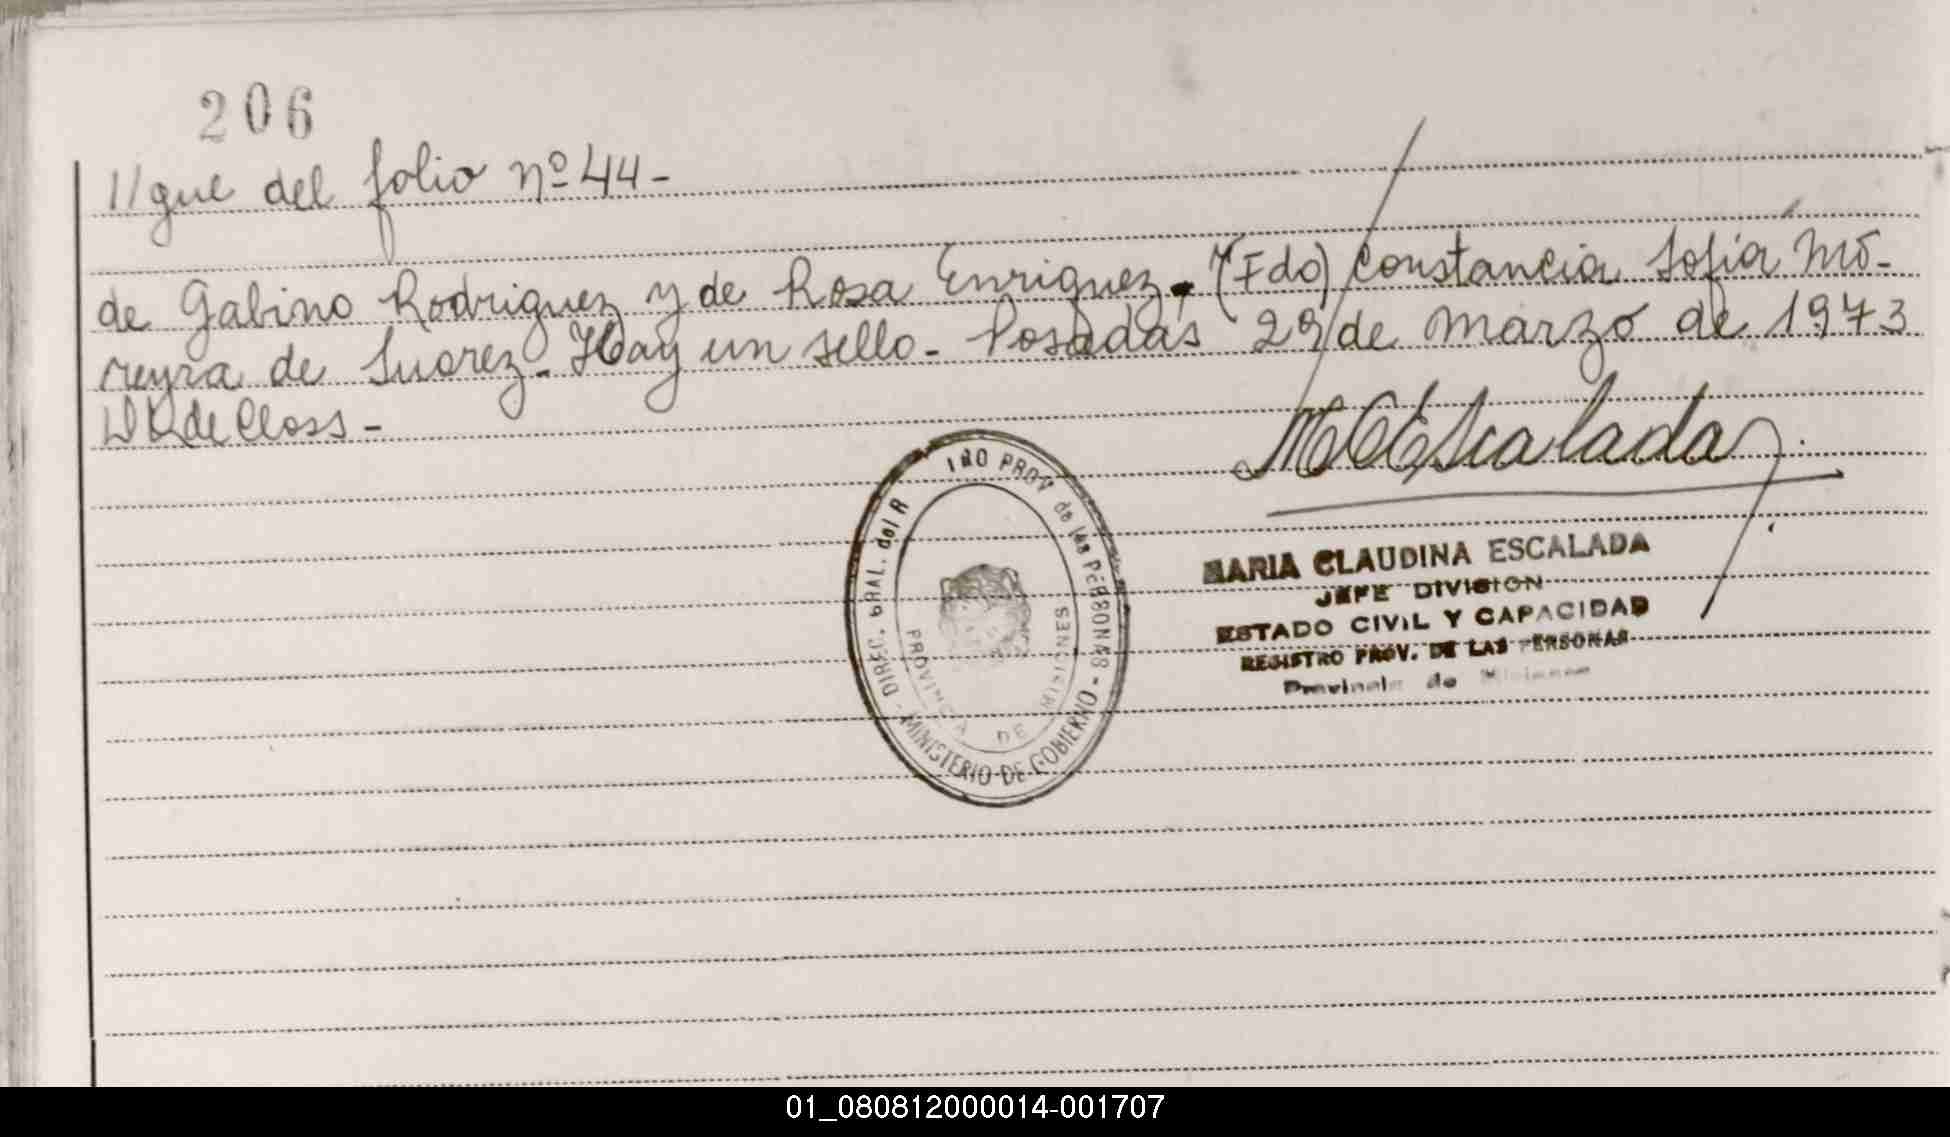 206
//gue del folio nº 44-
de Gabino Rodriguez y de Rosa Enriquez. (Fdo) Constancia Sofia Mo-
reyra de Suarez. Hay un sello. Posadas 29 de Marzo de 1973
de Closs -
MCEscalada
DIREC. GRAL. del R PROV de las PERSONAS - MINISTERIO DE GOBIERNO -
PROVINCIA DE MISIONES
MARIA CLAUDINA ESCALADA
JEFE DIVISION
ESTADO CIVIL Y CAPACIDAD
REGISTRO PROV. DE LAS PERSONAS
Provincia de Misiones
01_080812000014-001707